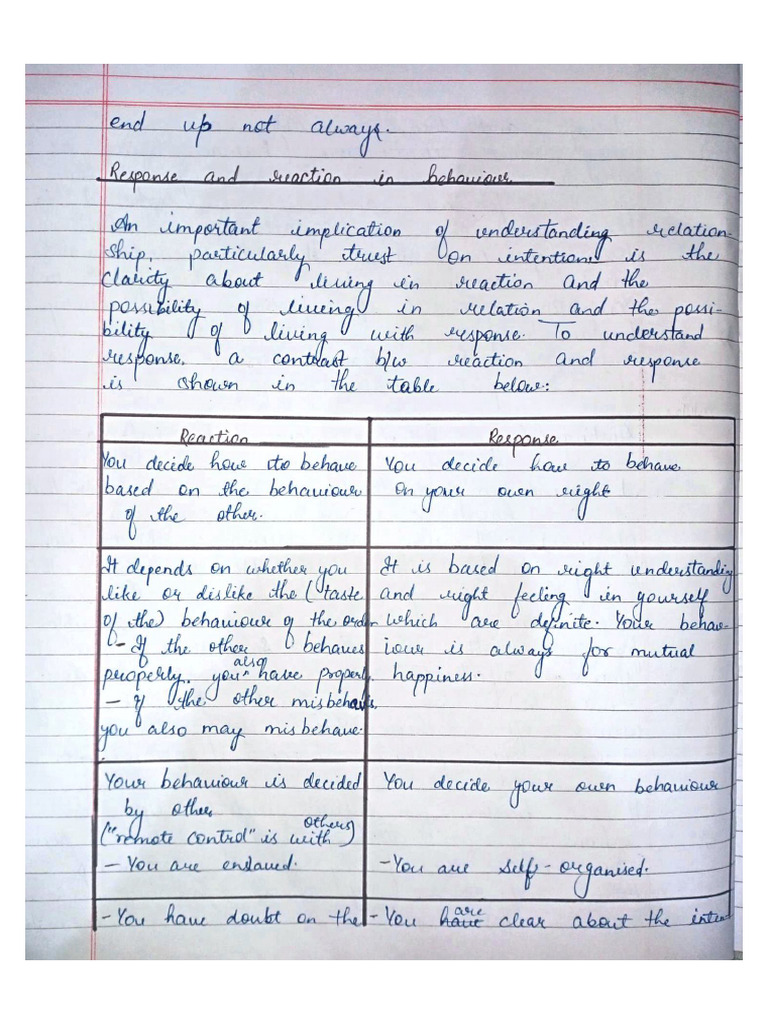 end up not always.
Response and reaction in behaviour
An important implication of understanding relation-
ship, particularly trust on intention is the
clarity about living in reaction and the
possibility of living in relation and the possi-
bility of living with response. To understand
response, a contrast b/w reaction and response
is shown in the table below:
Reaction
You decide how to behave
based on the behaviour
of the other.
Response
You decide how to behave
on your own right
It depends on whether you
like or dislike the (taste
of the) behaviour of the order
- If the other behaves
properly, you also have properly.
- if the other misbehaves,
you also may misbehave.
It is based on right understanding
and right feeling in yourself
which are definite. Your behav-
iour is always for mutual
happiness.
Your behaviour is decided
by other
("remote control" is with others)
- You are enslaved.
You decide your own behaviour
- You are self-organised.
- You have doubt on the
- You have are clear about the inten